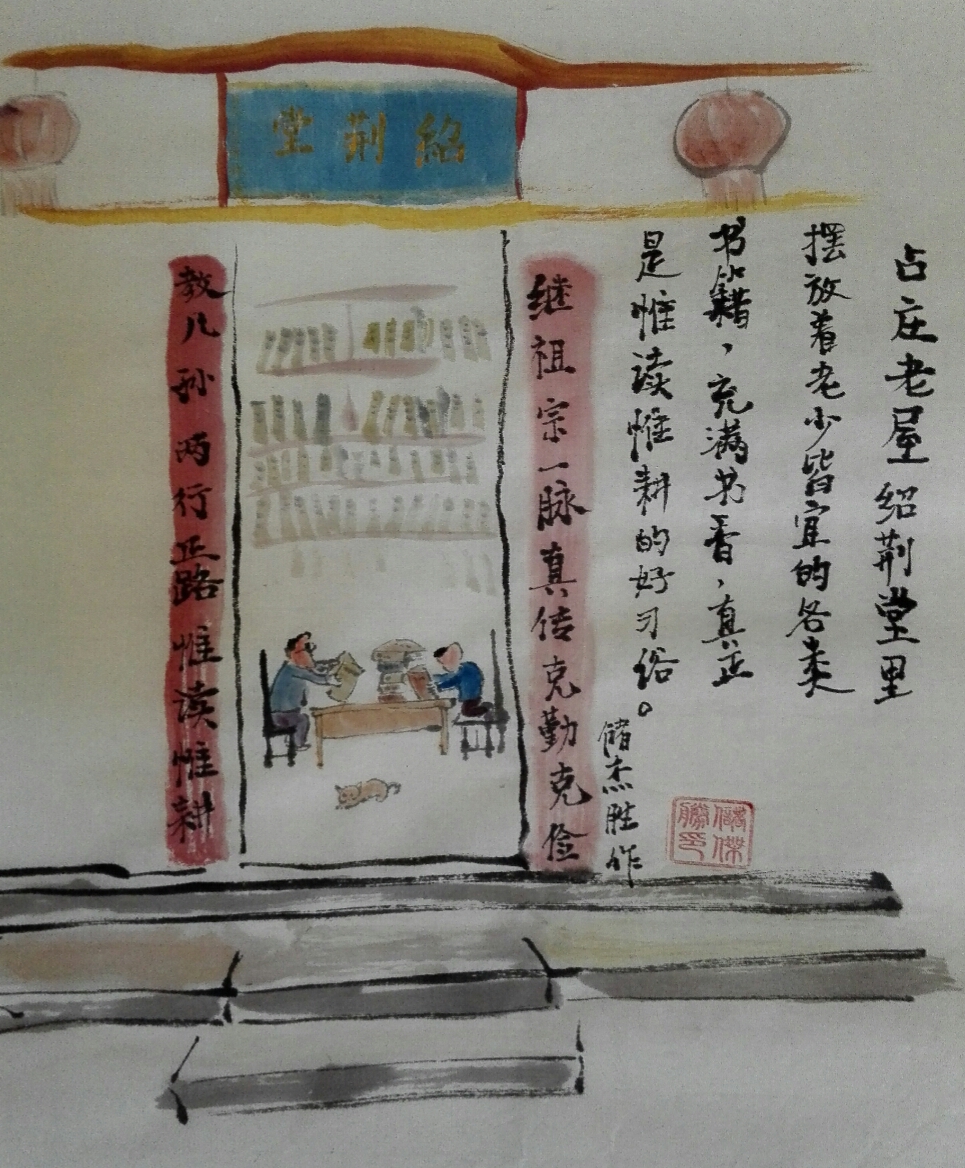 紹荆堂
继祖宗一脉真传克勤克俭
教儿孙两行正路惟读惟耕
占庄老屋绍荆堂里
摆放着老少皆宜的各类
书籍，充满书香，真正
是惟读惟耕的好习俗。
储杰胜作
儲傑勝印